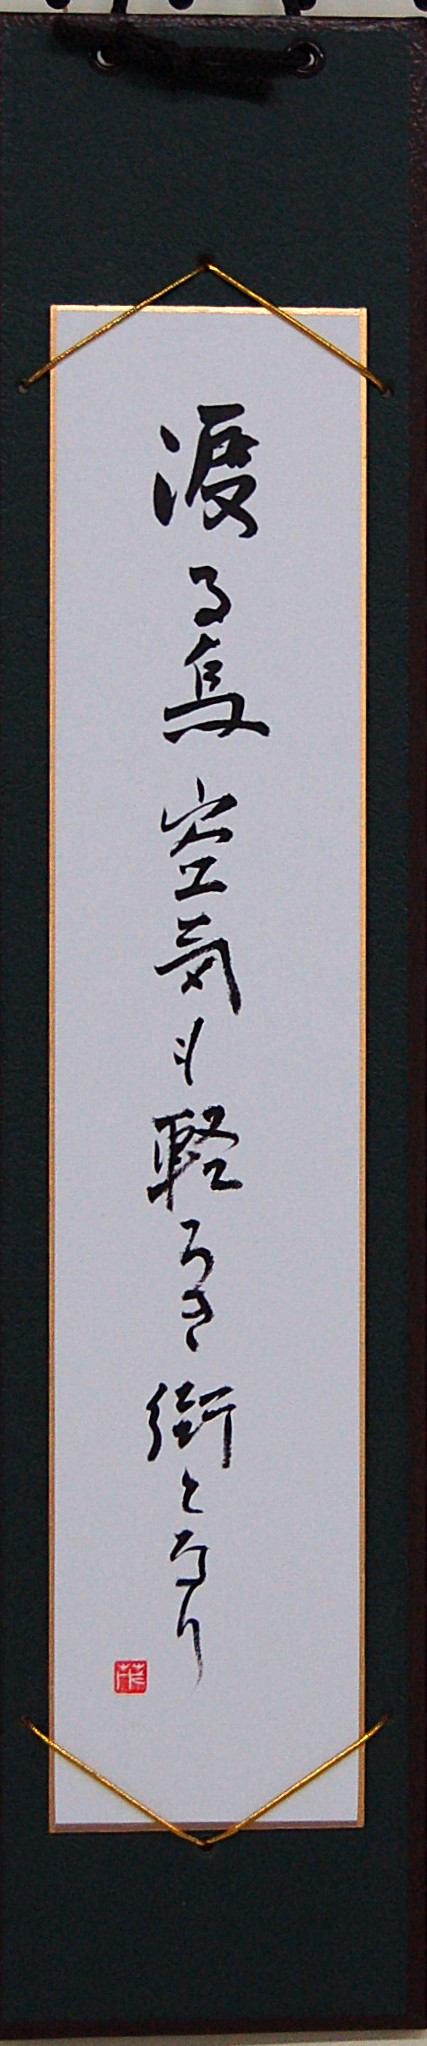 渡る鳥空気も軽ろき街となり